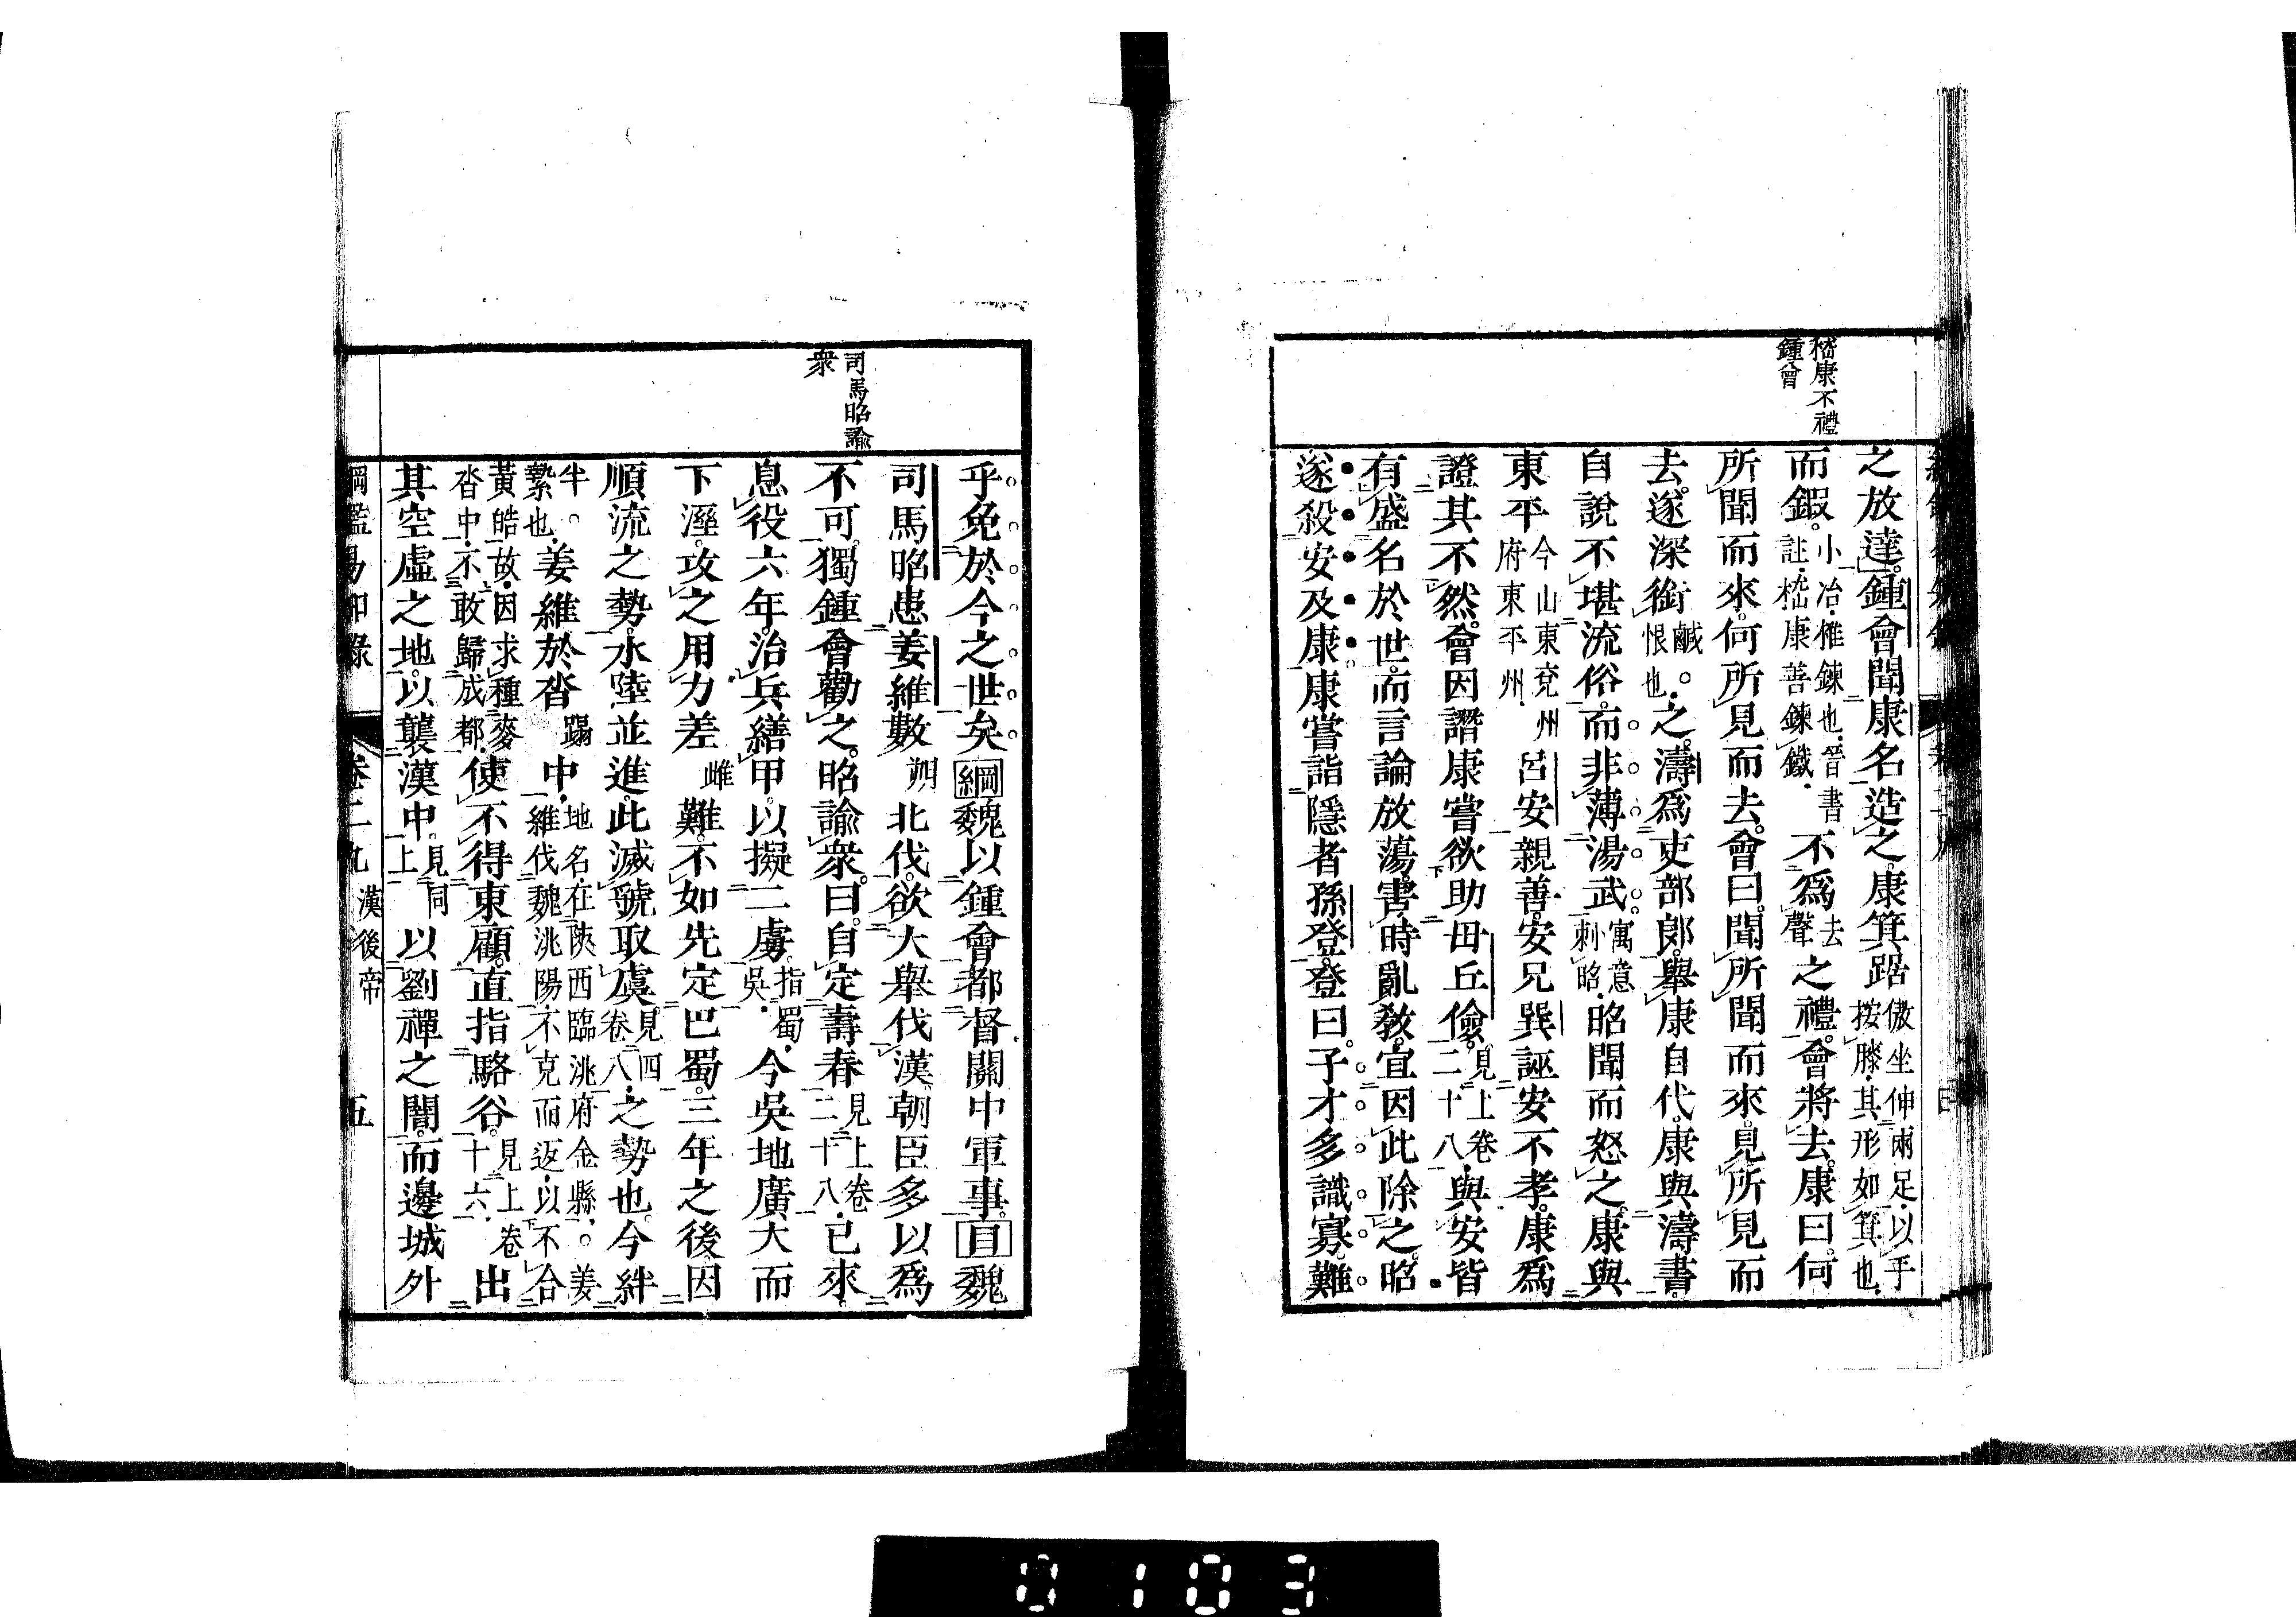 嵇康不禮
鍾會
之放達鍾會聞康名造之康箕踞傲坐伸兩足以手按膝其形如箕也
而鍜小冶椎鍊也晉書註嵇康善鍊鐵不爲去聲之禮會將去康曰何
所聞而來何所見而去會曰聞所聞而來見所見而
去遂深銜鹹。恨也之濤爲吏部郎舉康自代康與濤書
自說不堪流俗而非薄湯武寓意刺昭昭聞而怒之康與
東平今山東兗州府東平州呂安親善安兄巽誣安不孝康爲
證其不然會因譖康嘗欲助毌丘儉見上卷二十八與安皆
有盛名於世而言論放蕩害時亂敎宜因此除之昭
遂殺安及康康嘗詣隱者孫登登曰子才多識寡難
司馬昭諭
衆
乎免於今之世矣綱魏以鍾會都督關中軍事目魏
司馬昭患姜維數朔北伐欲大舉伐漢朝臣多以爲
不可獨鍾會勸之昭諭衆曰自定壽春見上卷二十八已來
息役六年治兵繕甲以擬二虜指蜀吳今吳地廣大而
下溼攻之用力差雌難不如先定巴蜀三年之後因
順流之勢水陸並進此滅虢取虞見四卷八之勢也今絆
半。縶也姜維於沓蹋中地名在陝西臨洮府金縣。姜維伐魏洮陽不克而返以不合
黃皓故因求種麥沓中不敢歸成都使不得東顧直指駱谷見上卷十六出
其空虛之地以襲漢中見同上以劉禪之闇而邊城外
綱鑑易知錄 卷二九 漢後帝 五
0103